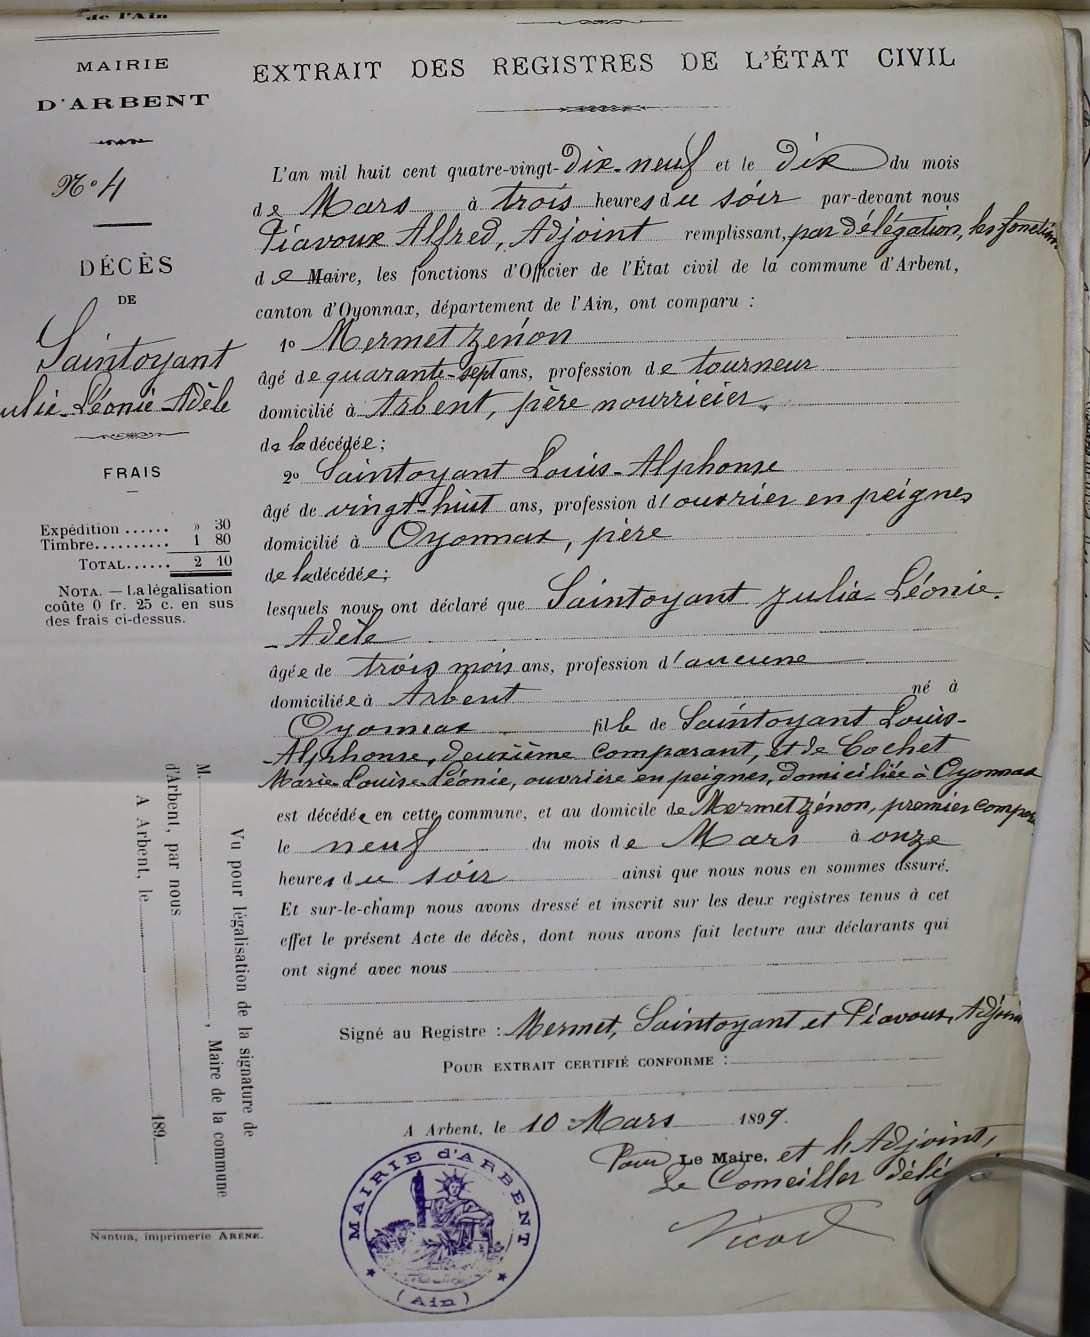 de l'Ain
MAIRIE
D'ARBENT
N° 4
DÉCÈS
DE
Saintoyant
ulie-Léonie-Adèle
FRAIS
Expédition ...... » 30
Timbre.......... 1 80
TOTAL...... 2 10
NOTA. — La légalisation
coûte 0 fr. 25 c. en sus
des frais ci-dessus.
EXTRAIT DES REGISTRES DE L'ÉTAT CIVIL
L'an mil huit cent quatre-vingt-dix-neuf et le dix du mois
de Mars à trois heures du soir par-devant nous
Piavoux Alfred, Adjoint remplissant, par délégation, les fonction
de Maire, les fonctions d'Officier de l'État civil de la commune d'Arbent,
canton d'Oyonnax, département de l'Ain, ont comparu :
1° Mermet Zénon
âgé de quarante-sept ans, profession de tourneur
domicilié à Arbent, père nourricier
de la décédée;
2° Saintoyant Louis-Alphonse
âgé de vingt-huit ans, profession d'ouvrier en peignes
domicilié à Oyonnax, père
de la décédée;
lesquels nous ont déclaré que Saintoyant Julia-Léonie-
-Adèle
âgée de trois mois ans, profession d'aucune
domiciliée à Arbent né à
Oyonnax fille de Saintoyant Louis-
-Alphonse, deuxième comparant, et de Cochet
Marie-Louise-Léonie, ouvrière en peignes, domiciliée à Oyonnax
est décédée en cette commune, et au domicile de Mermet Zénon, premier compar
le neuf du mois de Mars à onze
heures du soir ainsi que nous nous en sommes assuré.
Et sur-le-champ nous avons dressé et inscrit sur les deux registres tenus à cet
effet le présent Acte de décès, dont nous avons fait lecture aux déclarants qui
ont signé avec nous
Signé au Registre : Mermet, Saintoyant et Piavoux, Adjoin
POUR EXTRAIT CERTIFIÉ CONFORME :
A Arbent, le 10 Mars 1899.
Pour Le Maire, et l'Adjoint,
Le Conseiller délégué
Vu pour légalisation de la signature de
M. , Maire de la commune
d'Arbent, par nous
A Arbent, le 189
Nantua, imprimerie ARÈNE.
MAIRIE d'ARBENT
(Ain)